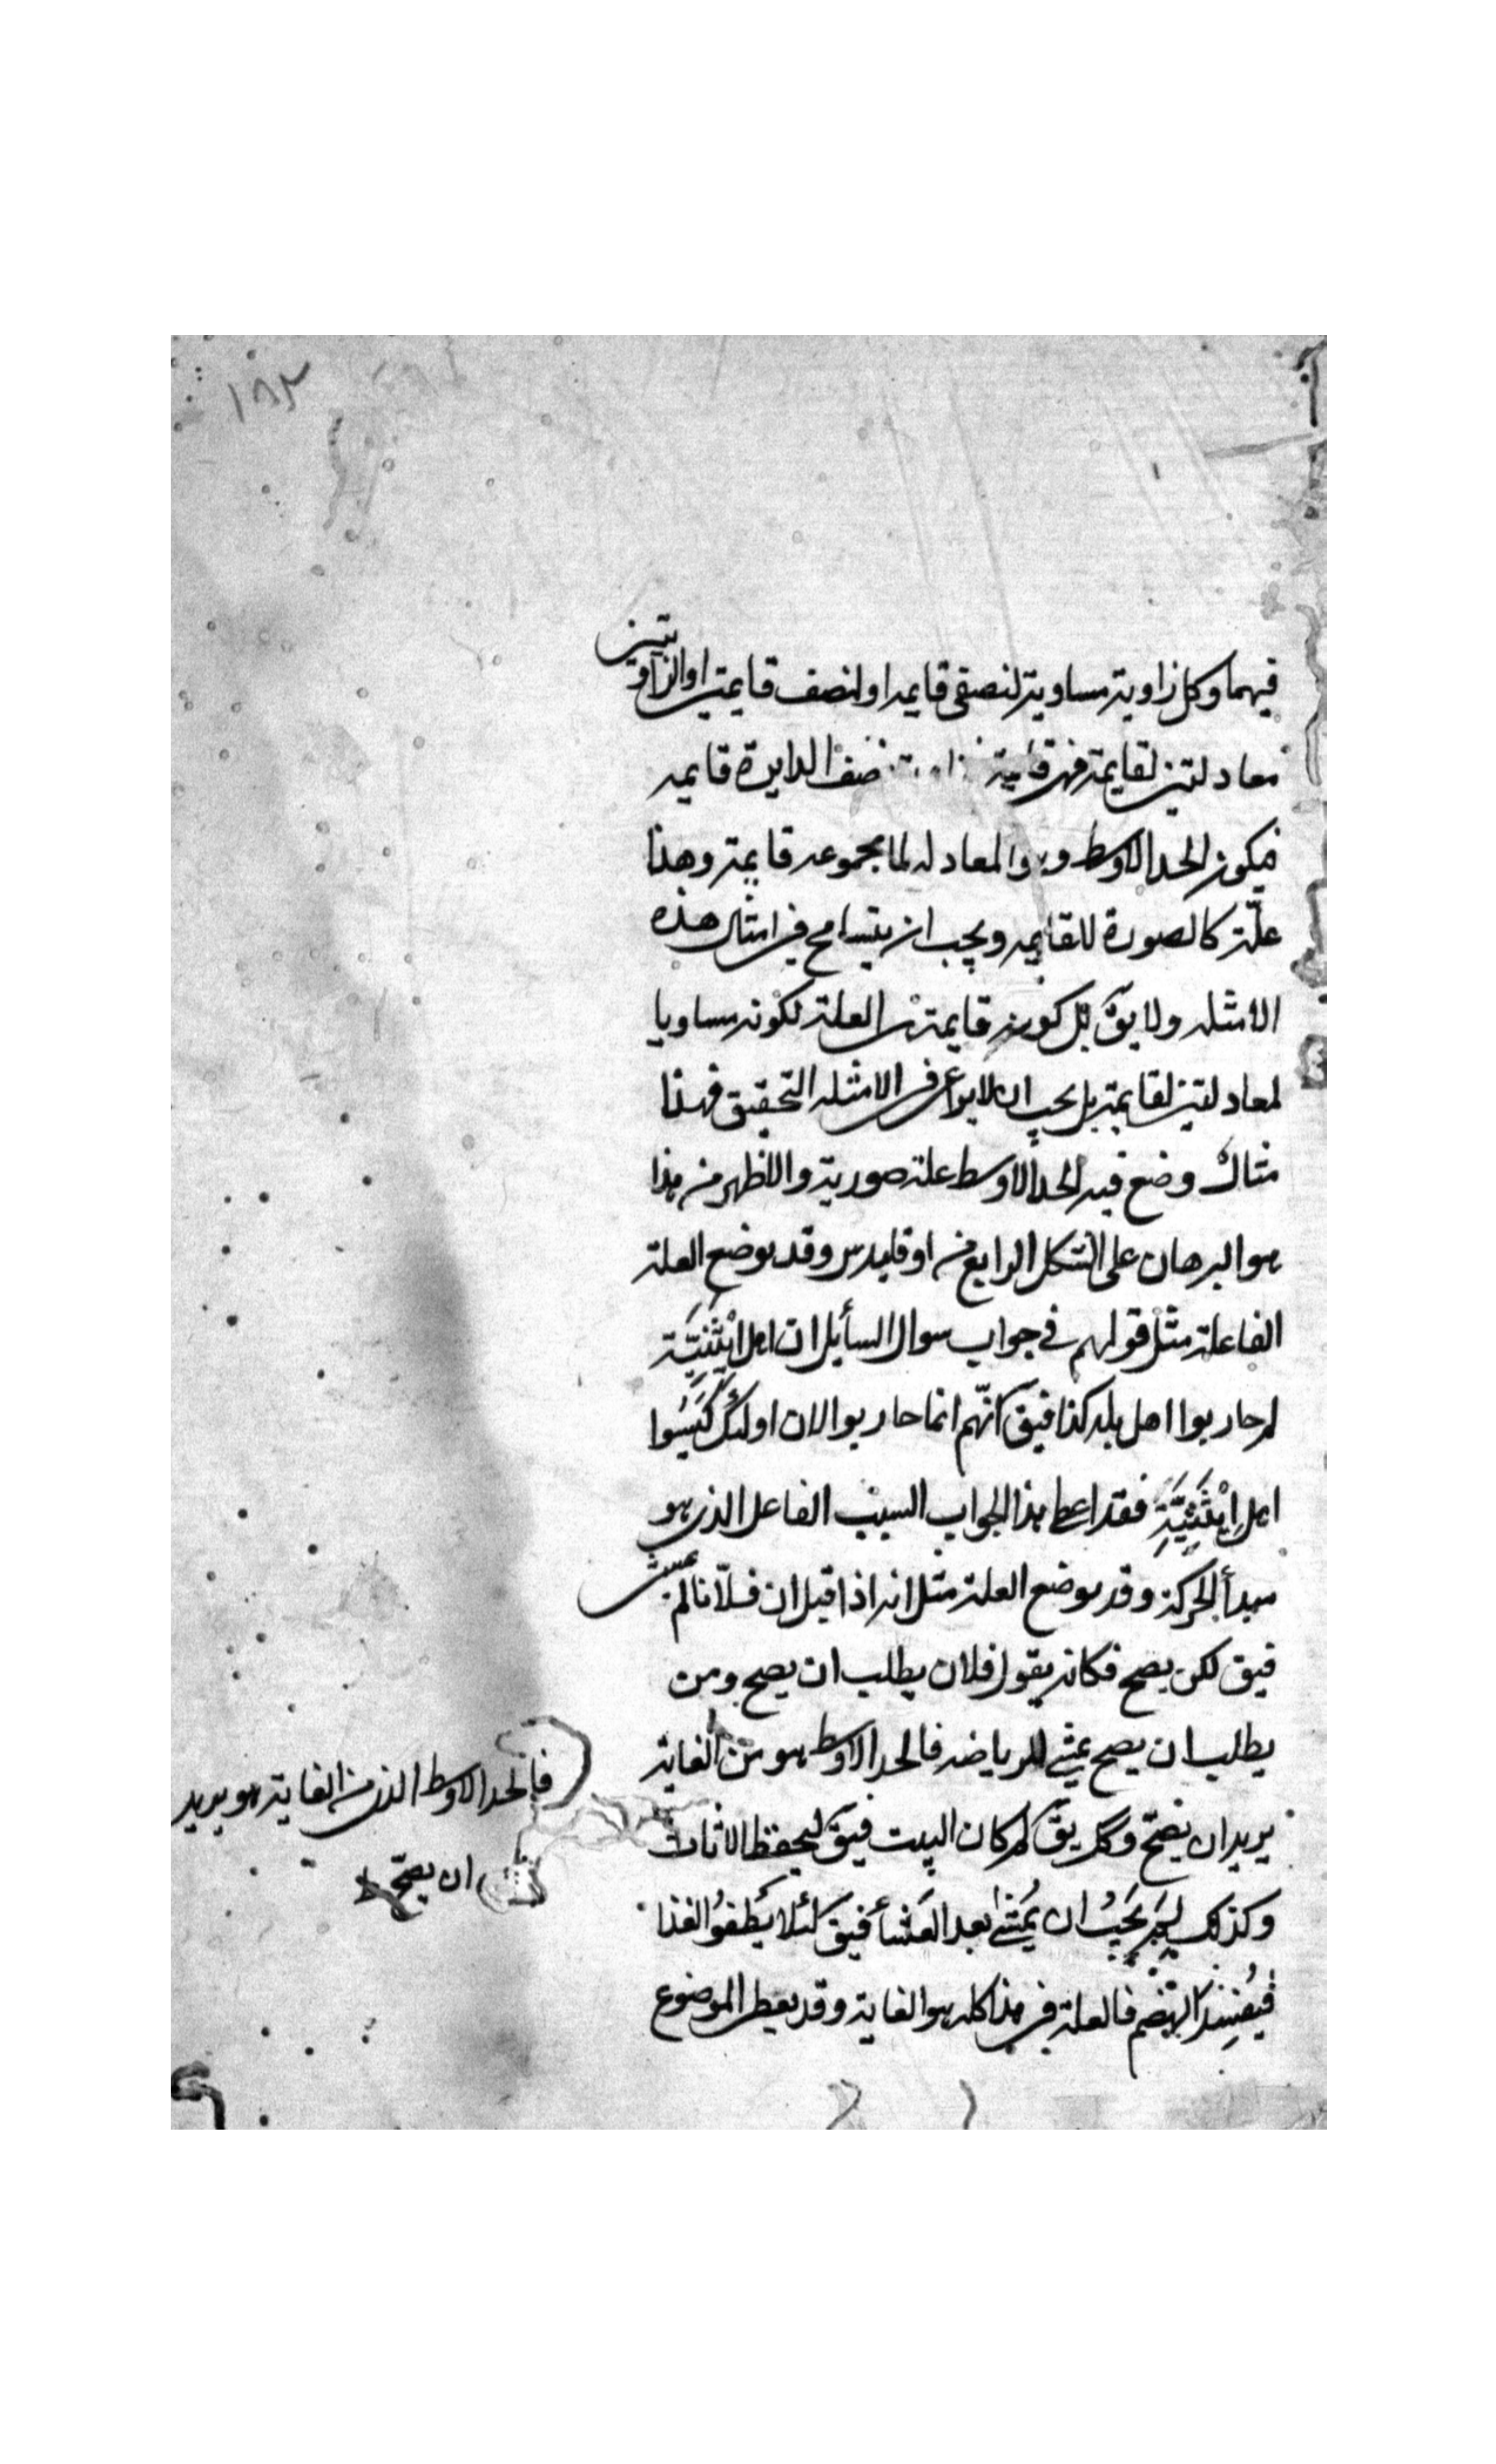 ١٨٣
فيهما وكل زاوية مساوية لنصفى قايمه او لنصف قايمتين او الزاويتين
معادلتين لقايمة فهى قايمة نصف الدايرة قايمه
فيكون الحد الاوسط المعادله لما مجموعه قايمة وهذا
علّة كالصورة للقايمه ويجب ان يتسامح فى امثال هذه
الامثله ولا يقَ بل كون قايمة العلة لكونه مساويا
لمعادلتين لقايمة بل يجب ان لا يراعى فى الامثله التحقيق فهذا
مثال وضع فيه الحد الاوسط علة صورية والاظهر من هذا
هو البرهان على الشكل الرابع من اوقليدس وقد يوضع العلة
الفاعلة مثل قولهم فى جواب سوال السأيل ان اهل اِيْثَنِيَّة
لم حاربوا اهل بلد كذا فيقَ انّهم انما حاربوا لان اولئك كَبَسُوا
اهل اِيْثَنِيَّةِ فقد اعطى هذا الجواب السبب الفاعل الذى هو
مبدأ الحركة وقد يوضع العلة مثل انه اذا قيل ان فلانا لم يمشى
فيق لكى يصح فكانه يقول فلان يطلب ان يصح ومن
يطلب ان يصح يمشى للرياضه فالحد الاوسط هو من الغاية
يريد ان يصحّ وكك يقَ لم كان البيت فيقَ ليحفظ الاثاث
وكذلك لِمَ يَجِبُ ان يُمْشَى بعد العَشَأ فيقَ لئلا يَطْفُوَ الغذا
فيُفْسِدَ الهَضْم فالعلة فى هذا كله هو الغاية وقد يعطى الموضوع
فالحد الاوسط الذى من الغاية هو يريد
ان يصحّ